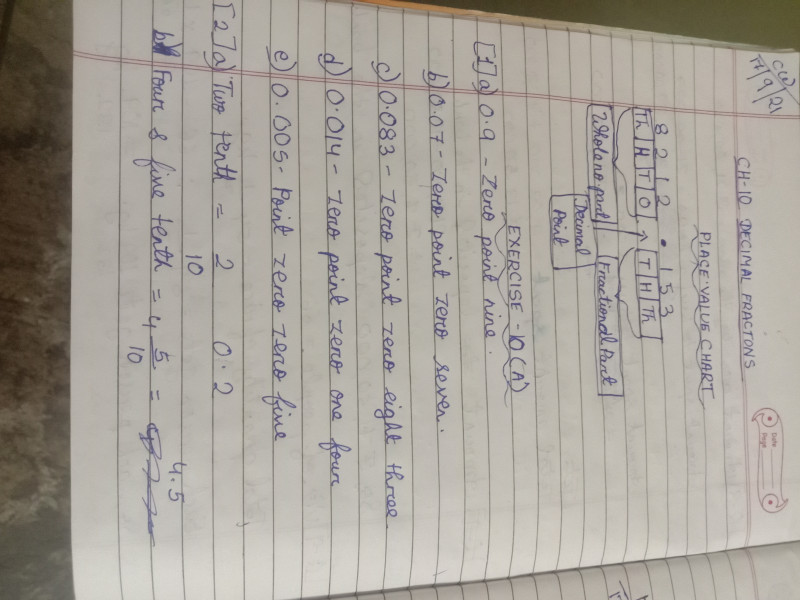 CW
17/9/21
Date
Page
CH-10 DECIMAL FRACTONS
PLACE VALUE CHART
8 2 1 2 . 1 5 3
Th H T O T H Th
Whole no part Fractional Part
Decimal
Point
EXERCISE - 10(A)
[1] a) 0.9 - Zero point nine.
b) 0.07 - Zero point zero seven.
c) 0.083 - Zero point zero eight three.
d) 0.014 - Zero point zero one four
e) 0.005 - Point zero zero five
[2] a) Two tenth = 2/10 0.2
b) Four & five tenth = 4 5/10 = 4.5